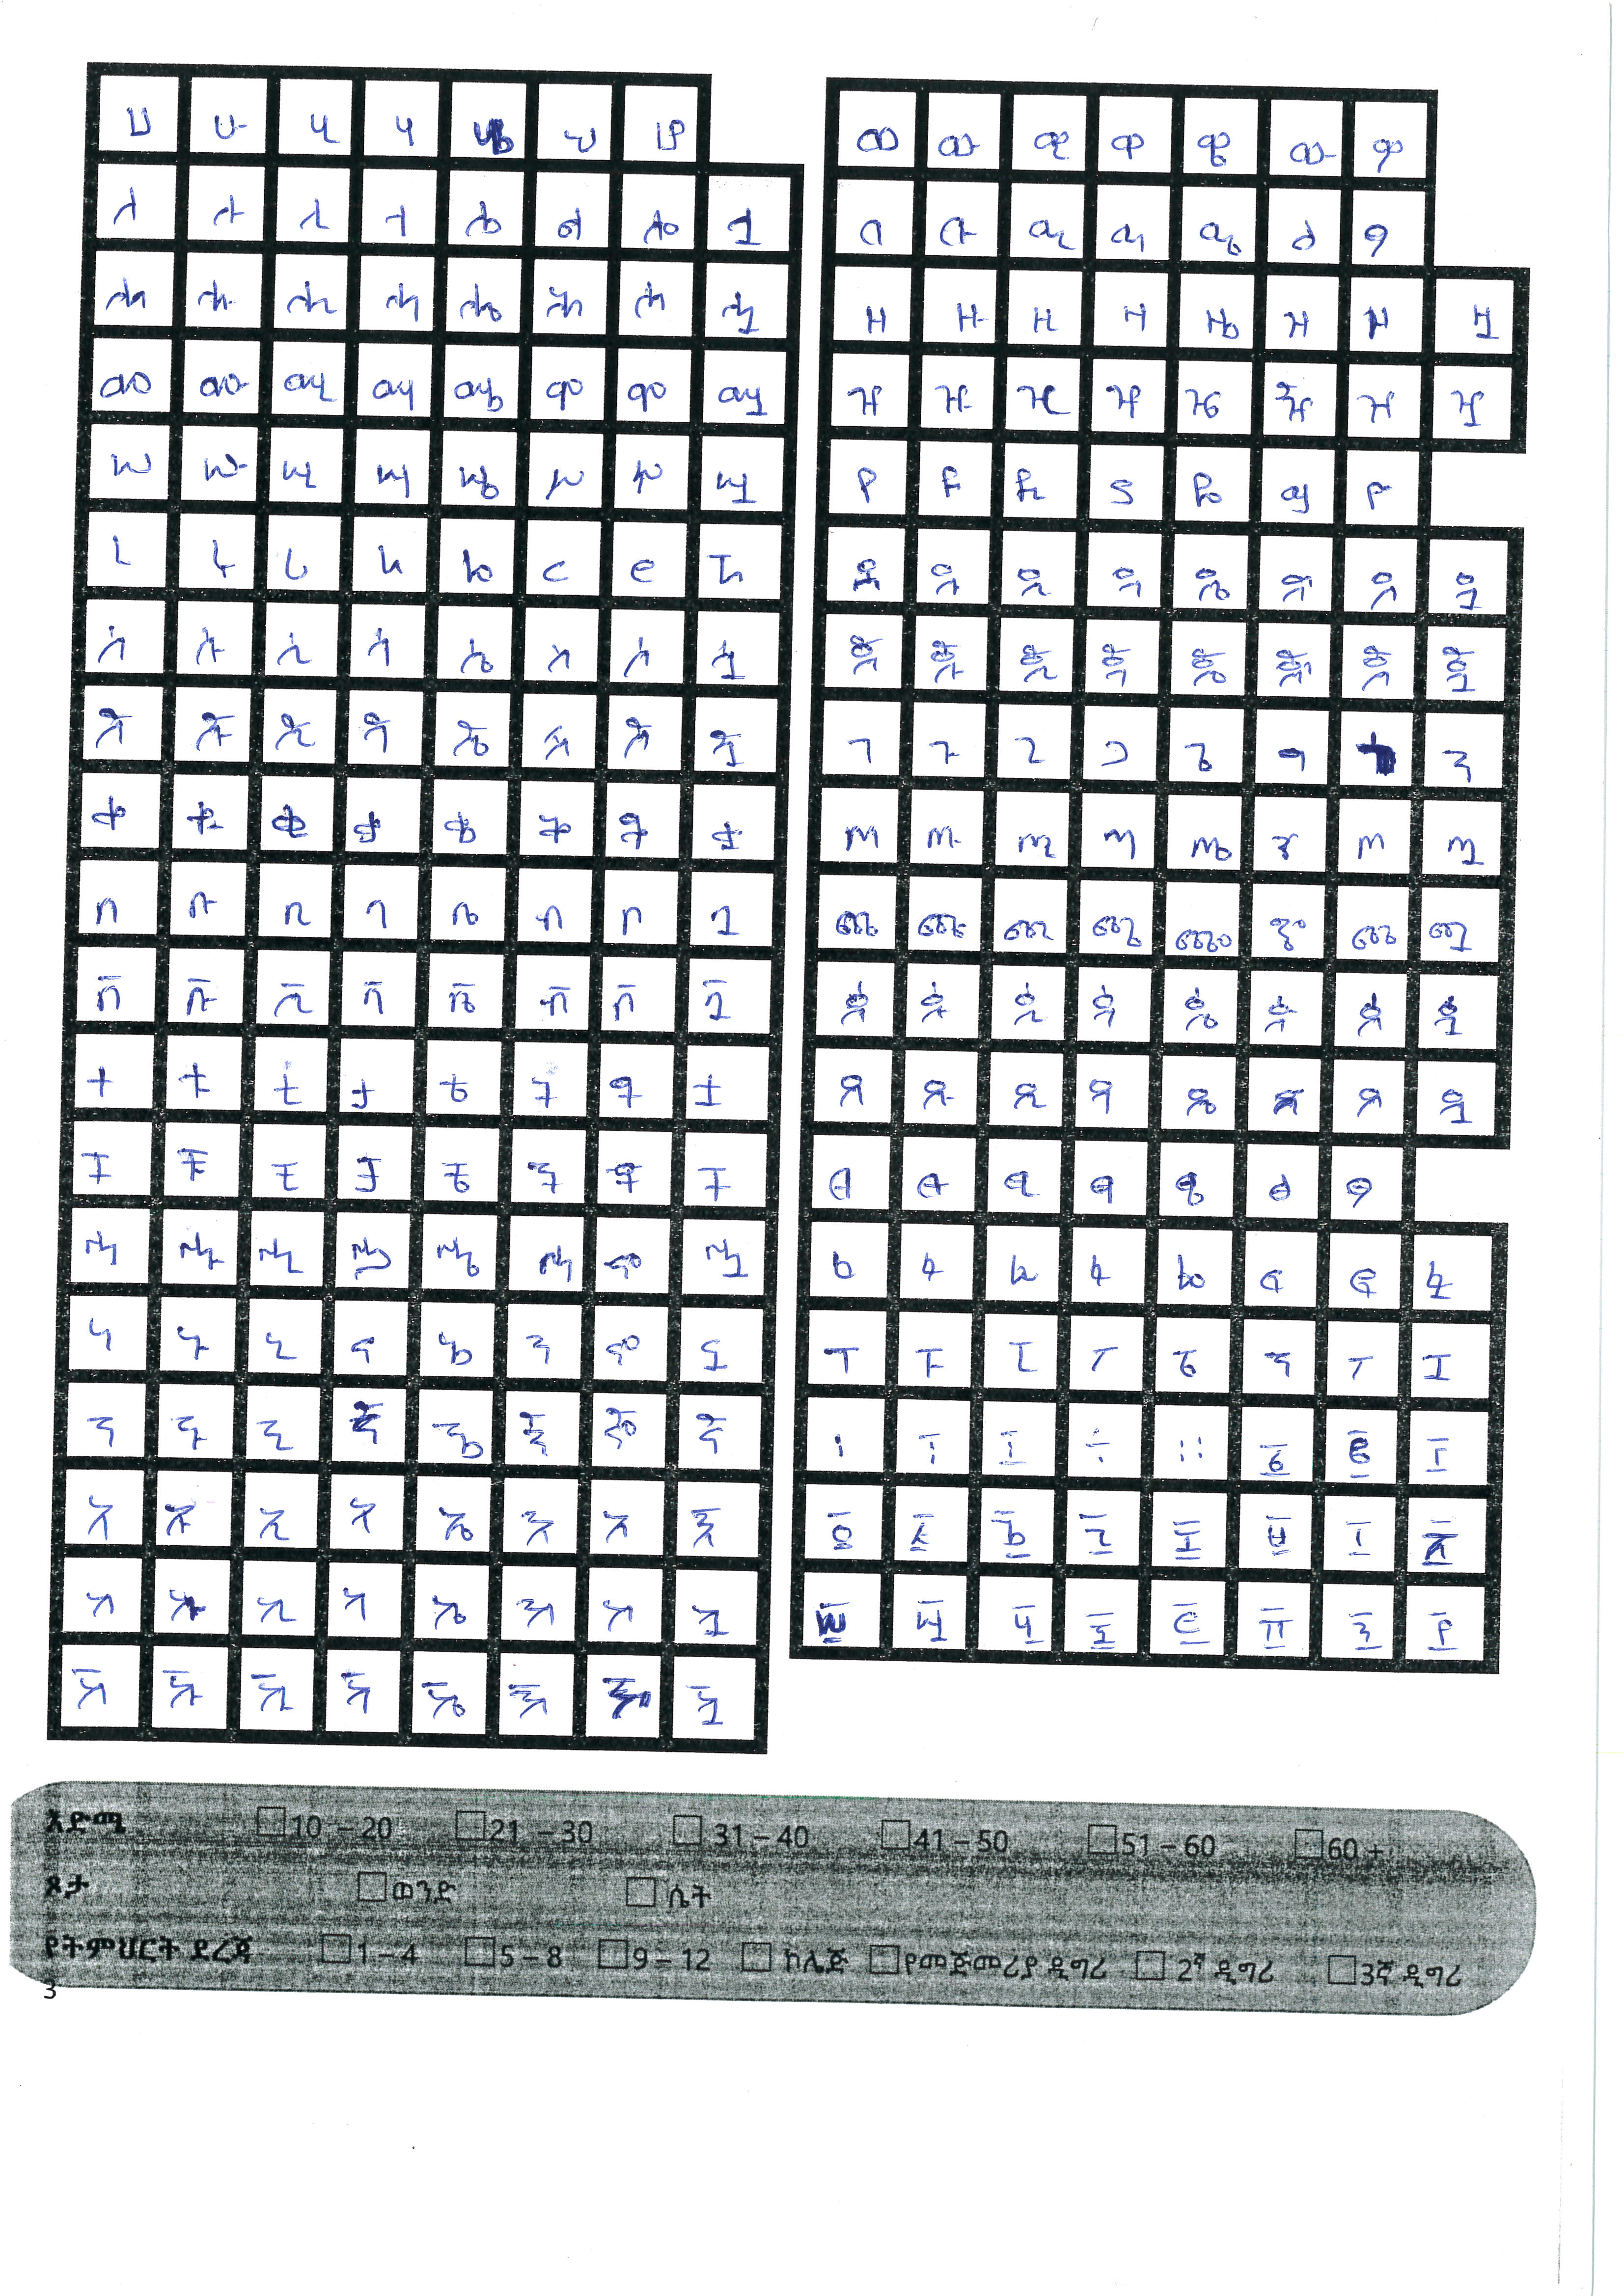 ሀ ሁ ሂ ሃ ሄ ህ ሆ
ለ ሉ ሊ ላ ሌ ል ሎ ሏ
ሐ ሑ ሒ ሓ ሔ ሕ ሖ ሗ
መ ሙ ሚ ማ ሜ ም ሞ ሟ
ሠ ሡ ሢ ሣ ሤ ሥ ሦ ሧ
ረ ሩ ሪ ራ ሬ ር ሮ ሯ
ሰ ሱ ሲ ሳ ሴ ስ ሶ ሷ
ሸ ሹ ሺ ሻ ሼ ሽ ሾ ሿ
ቀ ቁ ቂ ቃ ቄ ቅ ቆ ቋ
በ ቡ ቢ ባ ቤ ብ ቦ ቧ
ቨ ቩ ቪ ቫ ቬ ቭ ቮ ቯ
ተ ቱ ቲ ታ ቴ ት ቶ ቷ
ቸ ቹ ቺ ቻ ቼ ች ቾ ቿ
ኀ ኁ ኂ ኃ ኄ ኅ ኆ ኋ
ነ ኑ ኒ ና ኔ ን ኖ ኗ
ኘ ኙ ኚ ኛ ኜ ኝ ኞ ኟ
አ ኡ ኢ ኣ ኤ እ ኦ ኧ
ከ ኩ ኪ ካ ኬ ክ ኮ ኳ
ኸ ኹ ኺ ኻ ኼ ኽ ኾ ዃ
ወ ዉ ዊ ዋ ዌ ው ዎ
ዐ ዑ ዒ ዓ ዔ ዕ ዖ
ዘ ዙ ዚ ዛ ዜ ዝ ዞ ዟ
ዠ ዡ ዢ ዣ ዤ ዥ ዦ ዧ
የ ዩ ዪ ያ ዬ ይ ዮ
ደ ዱ ዲ ዳ ዴ ድ ዶ ዷ
ጀ ጁ ጂ ጃ ጄ ጅ ጆ ጇ
ገ ጉ ጊ ጋ ጌ ግ ጓ
ጠ ጡ ጢ ጣ ጤ ጥ ጦ ጧ
ጨ ጩ ጪ ጫ ጬ ጭ ጮ ጯ
ጰ ጱ ጲ ጳ ጴ ጵ ጶ ጷ
ጸ ጹ ጺ ጻ ጼ ጽ ጾ ጿ
ፀ ፁ ፂ ፃ ፄ ፅ ፆ
ፈ ፉ ፊ ፋ ፌ ፍ ፎ ፏ
ፐ ፑ ፒ ፓ ፔ ፕ ፖ ፗ
፡ ፤ ÷ ። ፩ ፪ ፫
፬ ፭ ፮ ፯ ፰ ፱ ፲ ፳
፴ ፵ ፶ ፷ ፸ ፹ ፺ ፻
እድሜ 10 – 20 21 – 30 31 – 40 41 – 50 51 – 60 60 +
ጾታ ወንድ ሴት
የትምህርት ደረጃ 1 – 4 5 – 8 9 – 12 ኮሌጅ የመጀመሪያ ዲግሪ 2ኛ ዲግሪ 3ኛ ዲግሪ
3